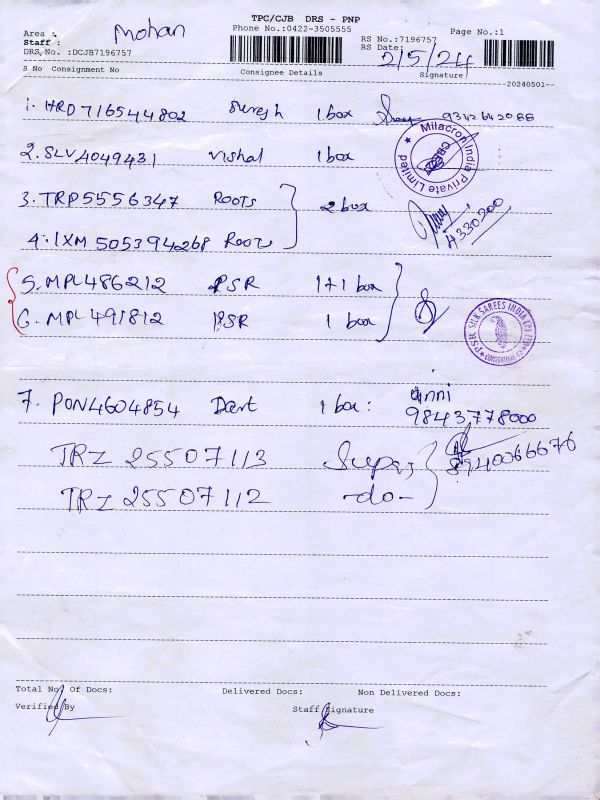 TPC/CJB DRS - PNP
Area : Mohan Phone No.:0422-3505555 Page No.:1
Staff : RS No.:7196757
DRS. No. :DCJB7196757 RS Date: 2/5/24
S No Consignment No Consignee Details Signature
20240501--
1. HRD716544802 Suresh 1 box 9342642088
2. SLV4049431 Vishal 1 box
Milacron India Private Limited
3. TRP5556347 Roots 2 box
4. IXM505394268 Roots
5. MPL486212 PSR 1+1 box
6. MPL491812 PSR 1 box
PSR SILK SAREES INDIA
7. PON4604854 Dart 1 box :
9843778000
TRZ 25507113 Super 8940066676
TRZ 25507112 -do-
Total No. Of Docs: Delivered Docs: Non Delivered Docs:
Verified By Staff Signature